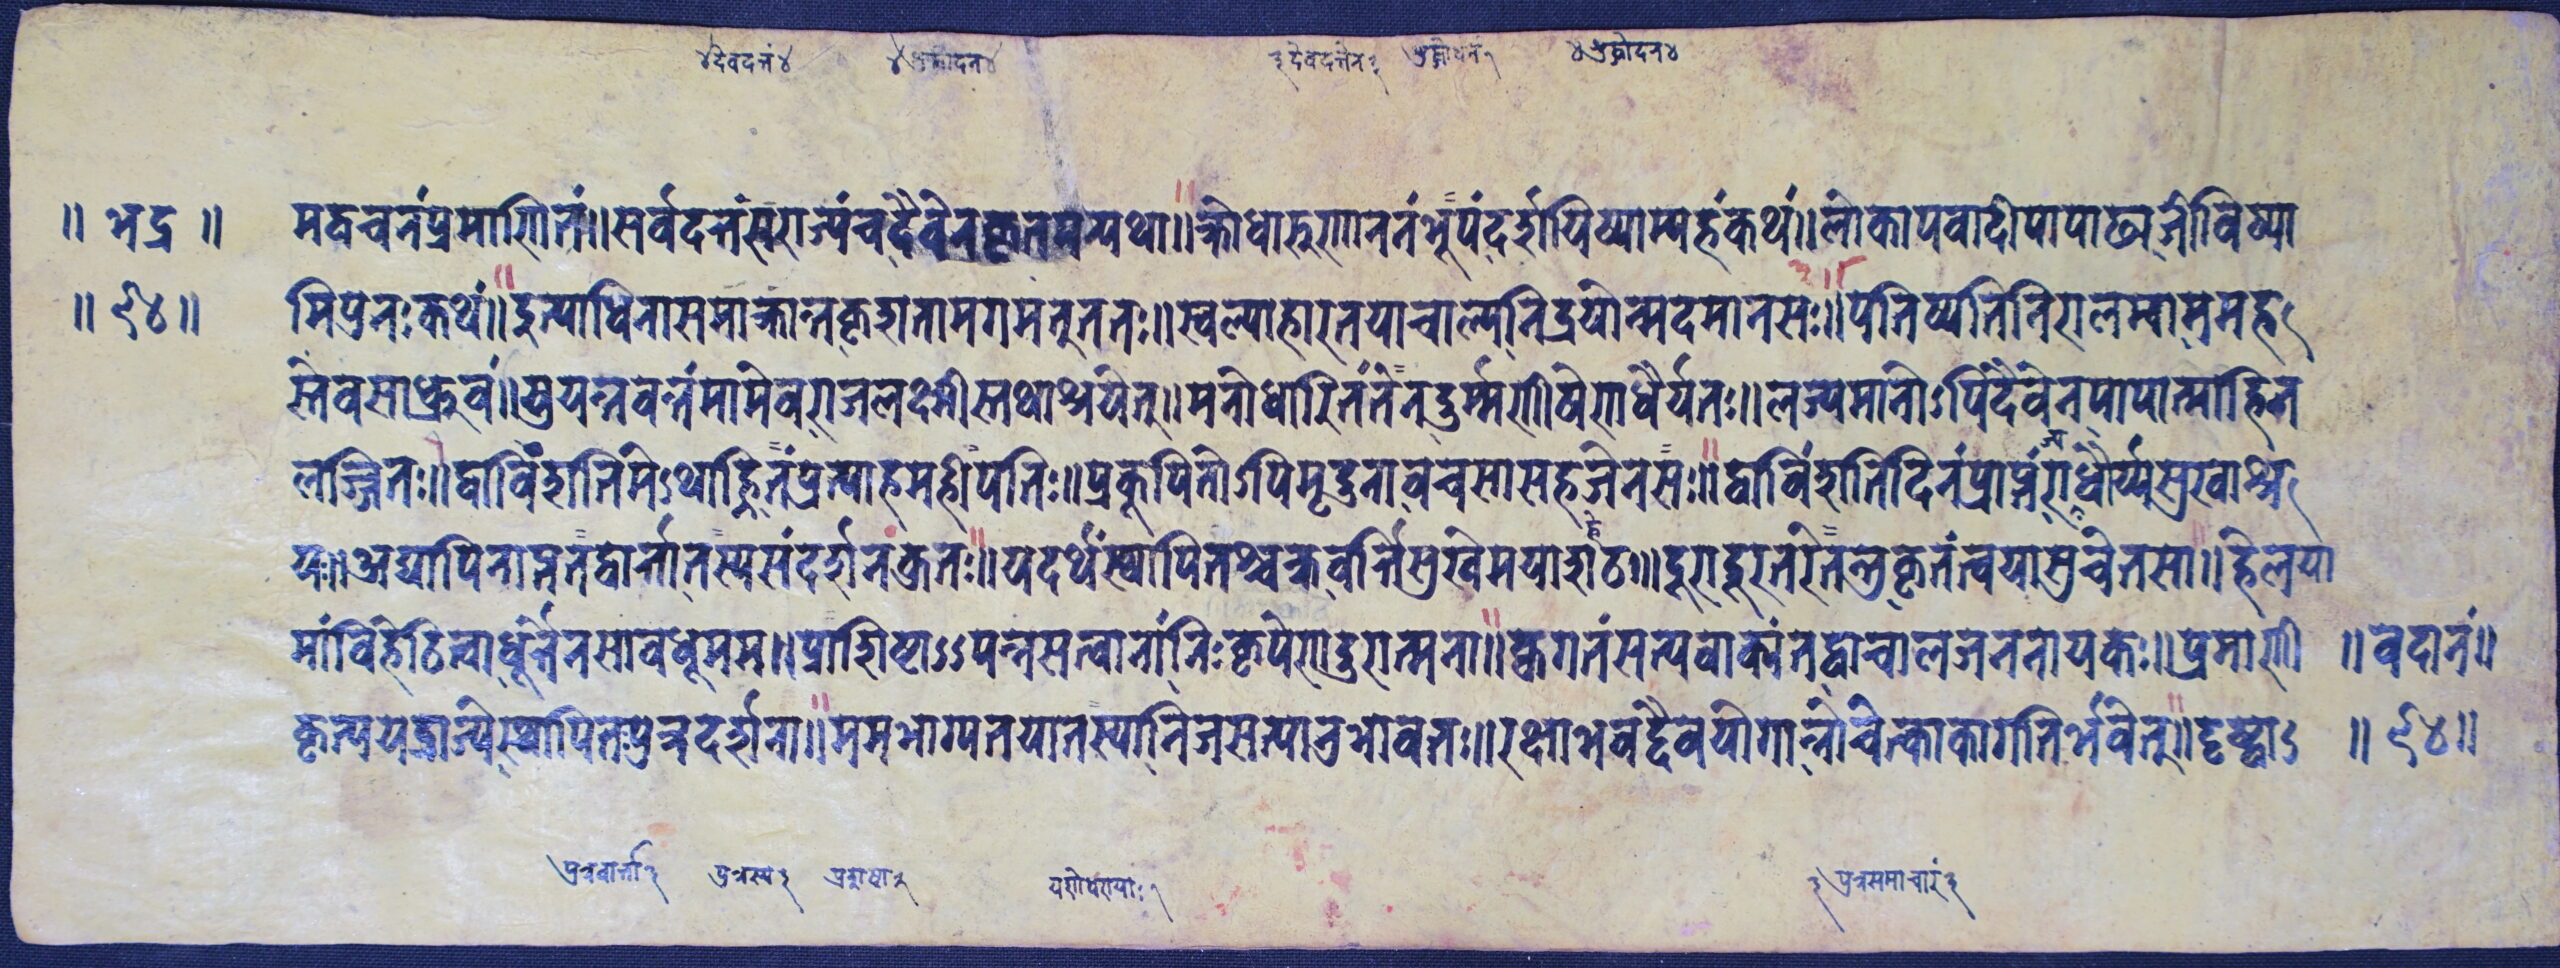 ४देवदत्तं४ ४शुद्धोदन४ ३देवदत्तेन३ शुद्धोधनं१ ४शुद्धोदन४
॥ भद्र ॥ मद्वचनंप्रमाणितं॥सर्वदत्तंसुराज्यंचदैवेनकृतमन्यथा॥क्रोधारुणाननंभूपंदर्शयिष्याम्यहंकथं॥लोकापवादीपापाढ्यजीविष्या
॥ ९४ ॥ मिपुनःकथं॥दुत्याधिनासमाक्रान्तकृशतामगमत्ततः॥स्वल्पाहारतयाचाल्पनिद्रयोन्मदमानसः॥पतिष्यतिनिरालम्बामम
स्तेवसाध्रुवं॥सुयत्नवन्तंमामेवराजलक्ष्मीस्तथाश्रयेत्॥मनोधारितंतेनदुर्म्मणीषेणधैर्यतः॥लज्यमानोऽपिदैवेनपापात्माहिन
लज्जितः॥द्वाविंशतिमेऽथाह्नितंप्रत्याहमहीपतिः॥प्रकूपितोऽपिमृदुनावचसासहजेनसः॥द्वाविंशतिदिनंप्राप्तं
यः॥अद्यापिनाप्ततद्वार्त्तातस्यसंदर्शनंकुतः॥यदर्थंस्थापितश्चक्रवर्त्तिसुखेमयाशठ॥दूराद्दूरतरेतत्तुकृतंत्वयासुचेतसा॥हेलया
मांविहेठित्वाधूर्त्तेनसावधूमम॥प्राशिष्टाऽऽपन्नसत्वानांनिःकृपेणदुरात्मना॥क्वगतंसत्यवाक्यंतद्वाचालजननायकः॥प्रमाणी ॥ वदानं॥
कृत्ययद्राज्येस्थापितःपुत्रदर्शना॥ममभाग्यतयातस्यानिजसत्यानुभावतः॥रक्षाभवद्दैवयोगान्नोचेत्काकागतिर्भवेत्॥दृष्ट्वाऽ ॥ ९४ ॥
पुत्रवार्त्ता१ पुत्रस्य३ यशोधरायाः१ ३पुत्रसमाचारं३